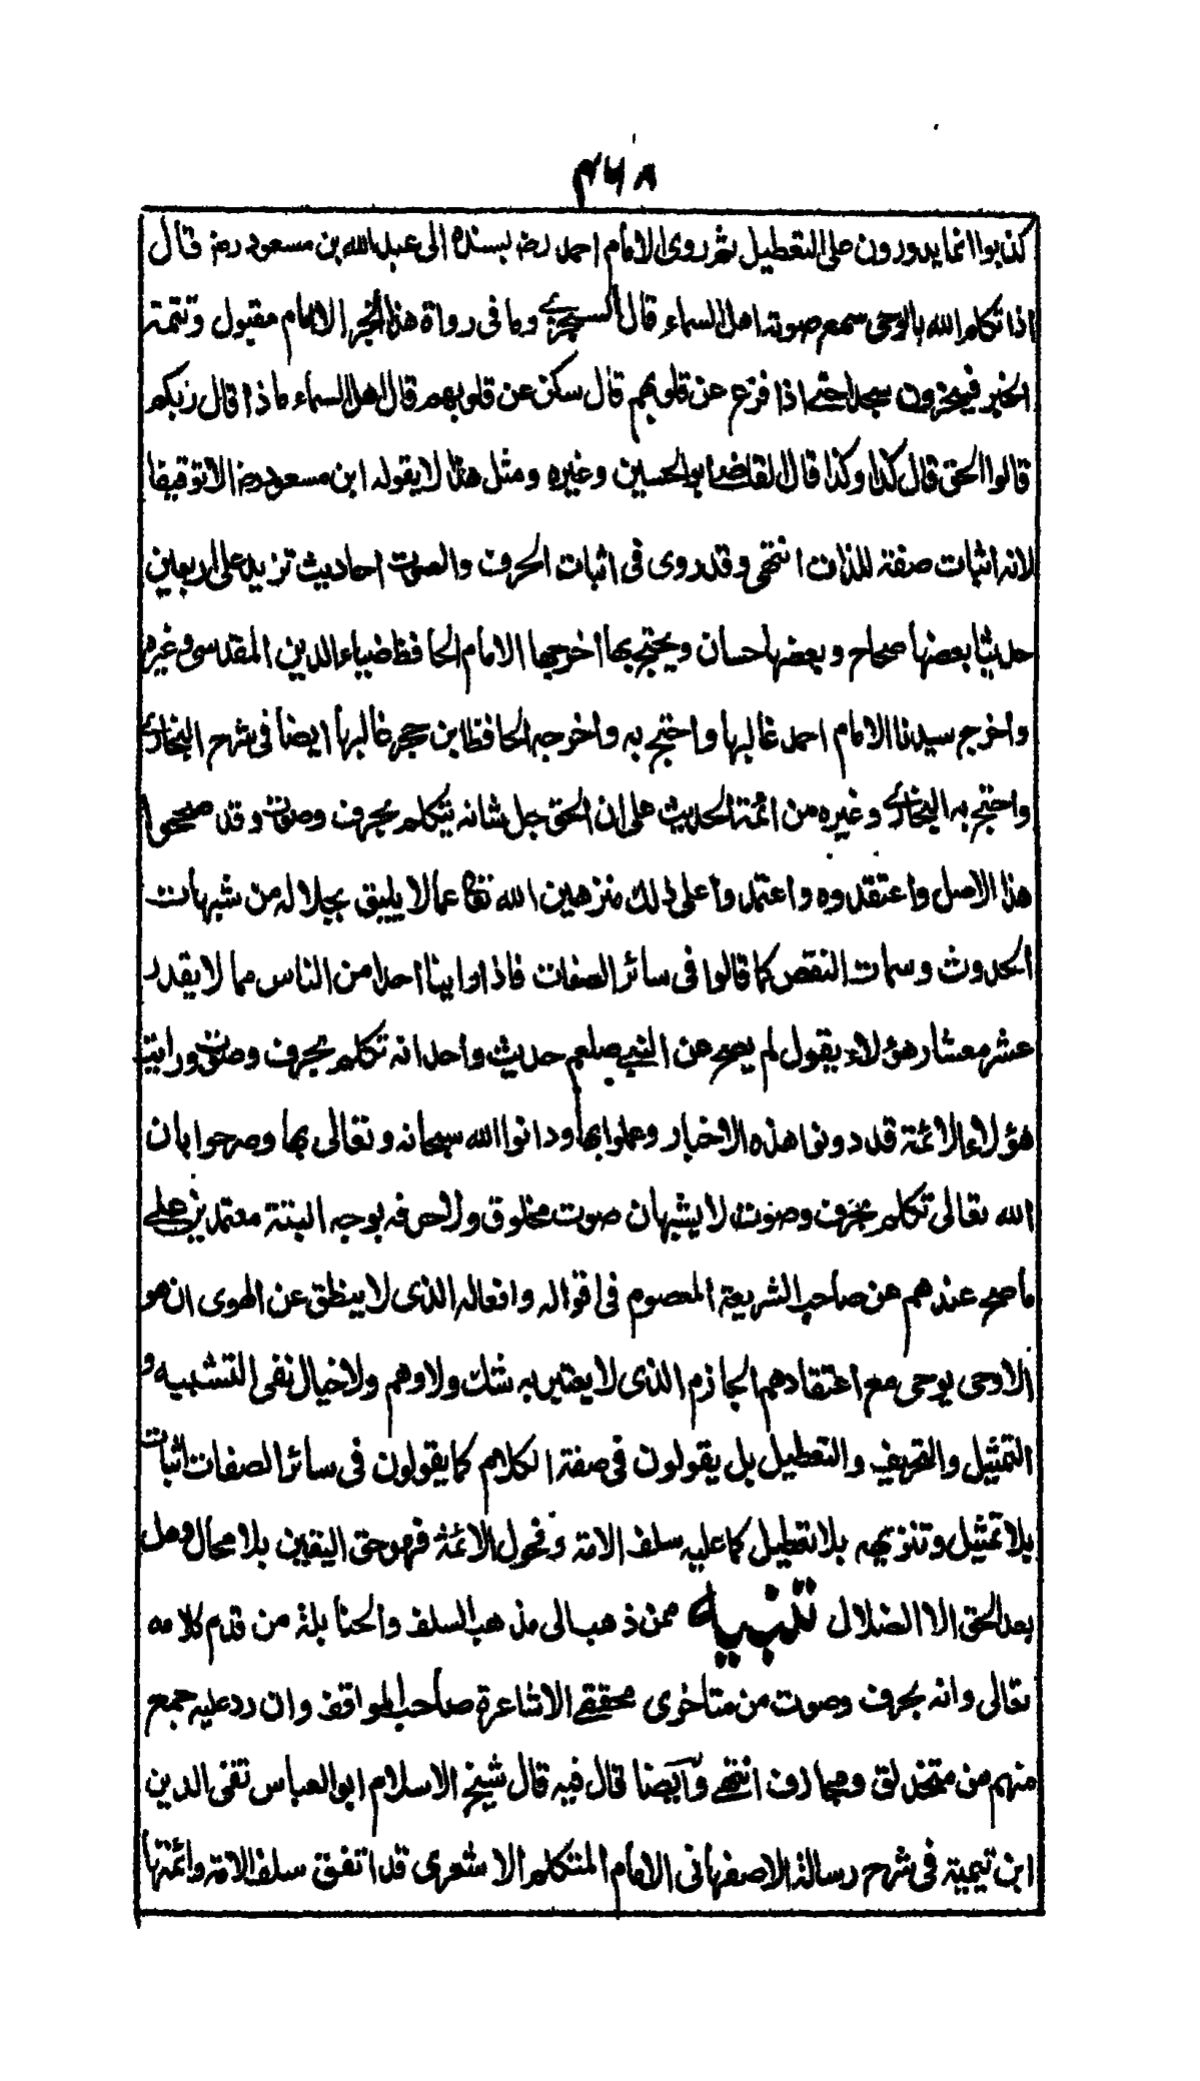 ٤٦٨
كذبوا انما يدورون على التعطيل ثم روى الامام احمد رضه بسنده الى عبد الله بن مسعود رضه قال
اذا تكلم الله بالوحى سمع صوته اهل السماء قال السجزى وما فى رواة هذا الخبر الا امام مقبول وتتمة
الخبر فيخرون سجدا حتى اذا فزع عن قلوبهم قال سكن عن قلوبهم قال اهل السماء ماذا قال ربكم
قالوا الحق قال كذا وكذا قال القاضى ابو الحسين وغيره ومثل هذا لا يقوله ابن مسعود رضه الا توقيفا
لانه اثبات صفة للذات انتهى وقد روى فى اثبات الحرف والصوت احاديث تزيد على اربعين
حديثا بعضها صحاح وبعضها حسان ويحتج بها اخرجها الامام الحافظ ضياء الدين المقدسى وغيره
واخرج سيدنا الامام احمد غالبها واحتج به واخرجه الحافظ ابن حجر غالبها ايضا فى شرح البخارى
واحتج به البخارى وغيره من ائمة الحديث على ان الحق جل شانه يتكلم بحرف وصوت وقد صححوا
هذا الاصل واعتقدوه واعتمدوا على ذلك منزهين الله تعا عما لا يليق بجلاله من شبهات
الحدوث وسمات النقص كما قالوا فى سائر الصفات فاذا راينا احدا من الناس مما لا يقدر
عشر معشار هؤلاء يقول لم يصح عن النبى صلعم حديث واحد انه تكلم بحرف وصوت ورايت
هؤلاء الائمة قد دونوا هذه الاخبار وعملوا بها ودانوا الله سبحانه وتعالى بها وصرحوا بان
الله تعالى تكلم بحرف وصوت لا يشبهان صوت مخلوق ولا حرفه بوجه البتة معتمدين على
ما صح عندهم عن صاحب الشريعة المعصوم فى اقواله وافعاله الذى لا ينطق عن الهوى ان هو
الا وحى يوحى مع اعتقادهم الجازم الذى لا يعتريه شك ولا وهم ولا خيال نفى التشبيه و
التمثيل والتحريف والتعطيل بل يقولون فى صفة الكلام كما يقولون فى سائر الصفات اثبات
بلا تمثيل وتنزيه بلا تعطيل كما عليه سلف الامة وفحول الائمة فهو حق اليقين بلا محال وهل
بعد الحق الا الضلال تنبيه ممن ذهب الى مذهب السلف والحنابلة من قدم كلامه
تعالى وانه بحرف وصوت من متاخرى محققى الاشاعرة صاحب المواقف وان رد عليه جمع
منهم من متحذلق ومجازف انتهى وايضا قال فيه قال شيخ الاسلام ابو العباس تقى الدين
ابن تيمية فى شرح رسالة الاصفهانى الامام المتكلم الاشعرى قد اتفق سلف الامة وائمتها